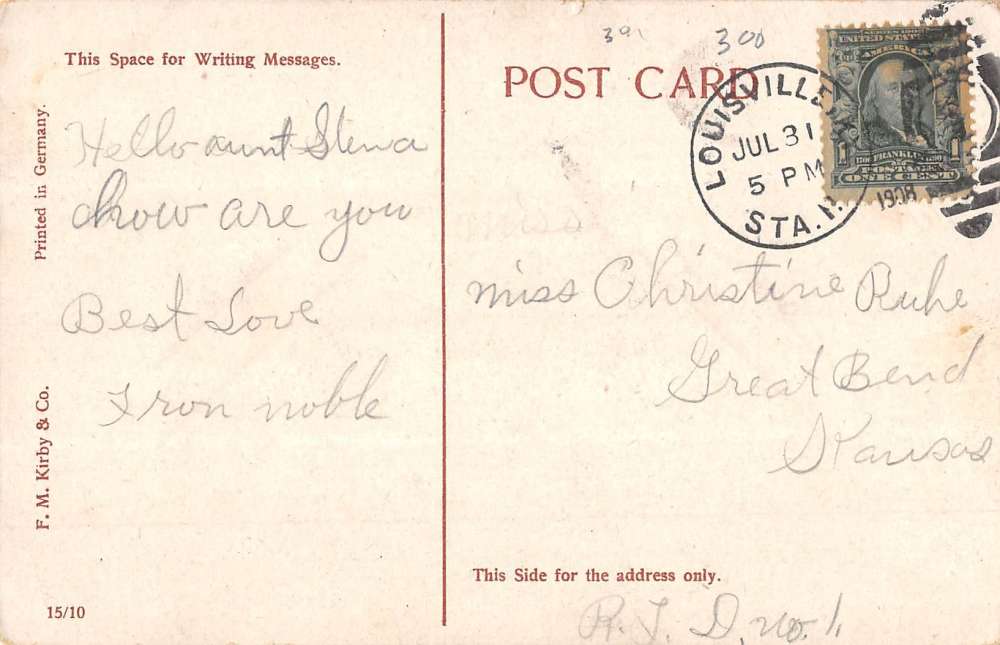 This Space for Writing Messages.
Hello aunt Stena
how are you
Best Love
Iron noble
Printed in Germany.
F. M. Kirby & Co.
15/10
300
POST CARD
LOUISVILLE
JUL 31
5 PM
STA.
1908
SERIES 1902
UNITED STATES
AMERICA
1706 FRANKLIN 1790
POSTAGE
ONE CENT
1 1
miss Christine Ruhe
Great Bend
Kansas
This Side for the address only.
R. F. D. no. 1.